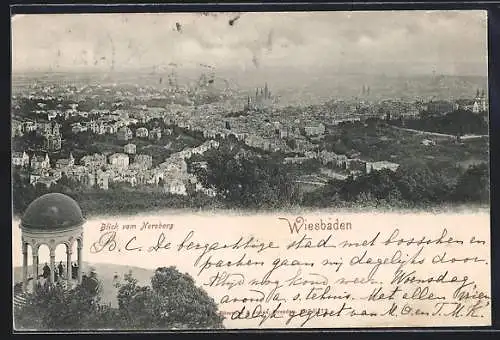 Blick vom Neroberg
Wiesbaden
B.C. De bergachtige stad met bosschen en
parken gaan mij dagelijks door.
Altijd nog koud weer. Woensdag
avond a.s. tehuis. Met allen
gegroet van M. en T.M.K.